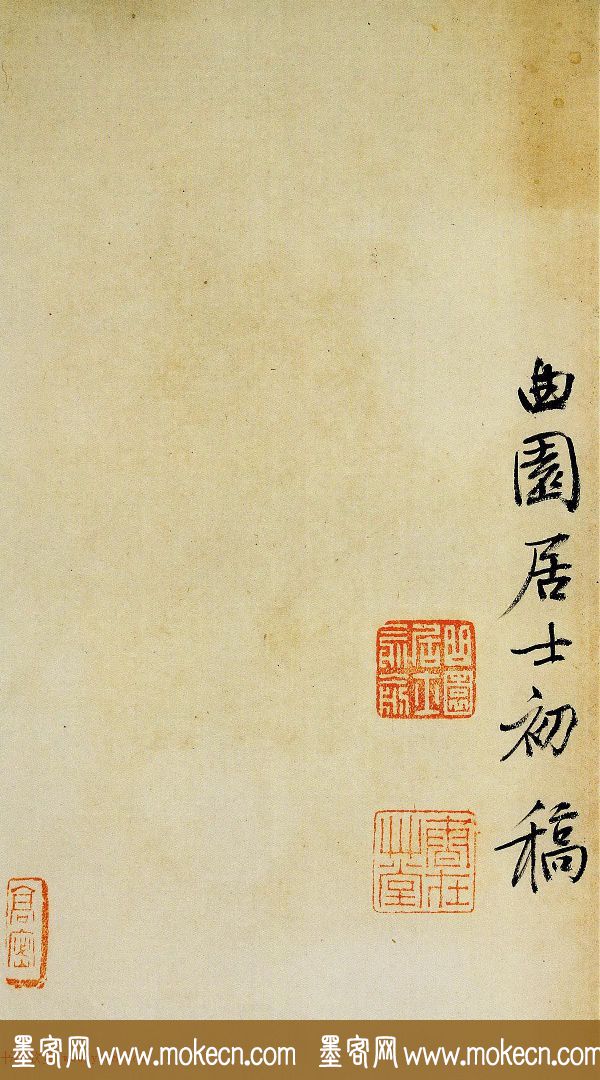 曲園居士初稿
曲園居士
春在艸堂
高密
墨客网 www.mokecn.com 墨客网 www.mokecn.com